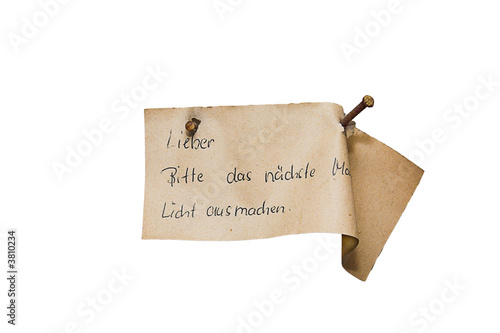 Lieber
Bitte das nächste Ma
Licht ausmachen.
#3810234